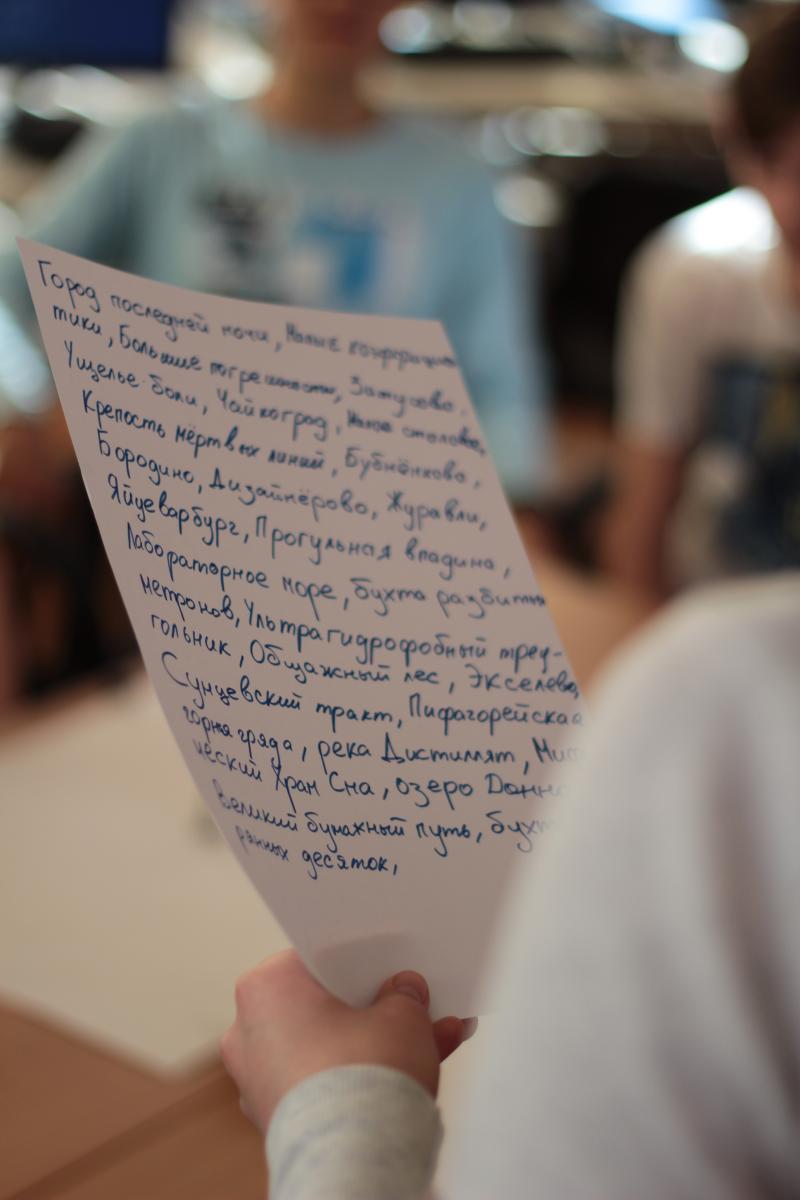 Город последней ночи, Малые
тики, Большие погрешности, Затусово,
Ущелье боли, Чайкоград, Малое столово,
Крепость мёртвых линий, Бубнёнково,
Бородино, Дизайнёрово, Журавли,
Яйцеварбург, Прогульная впадина,
Лабораторное море, бухта разбитых
метронов, Ультрагидрофобный треу-
гольник, Общажный лес, Экселево,
Сунцевский тракт, Пифагорейская
горная гряда, река Дистиллят,
ческий Храм Сна, озеро
великий бумажный путь,
ранных десяток,